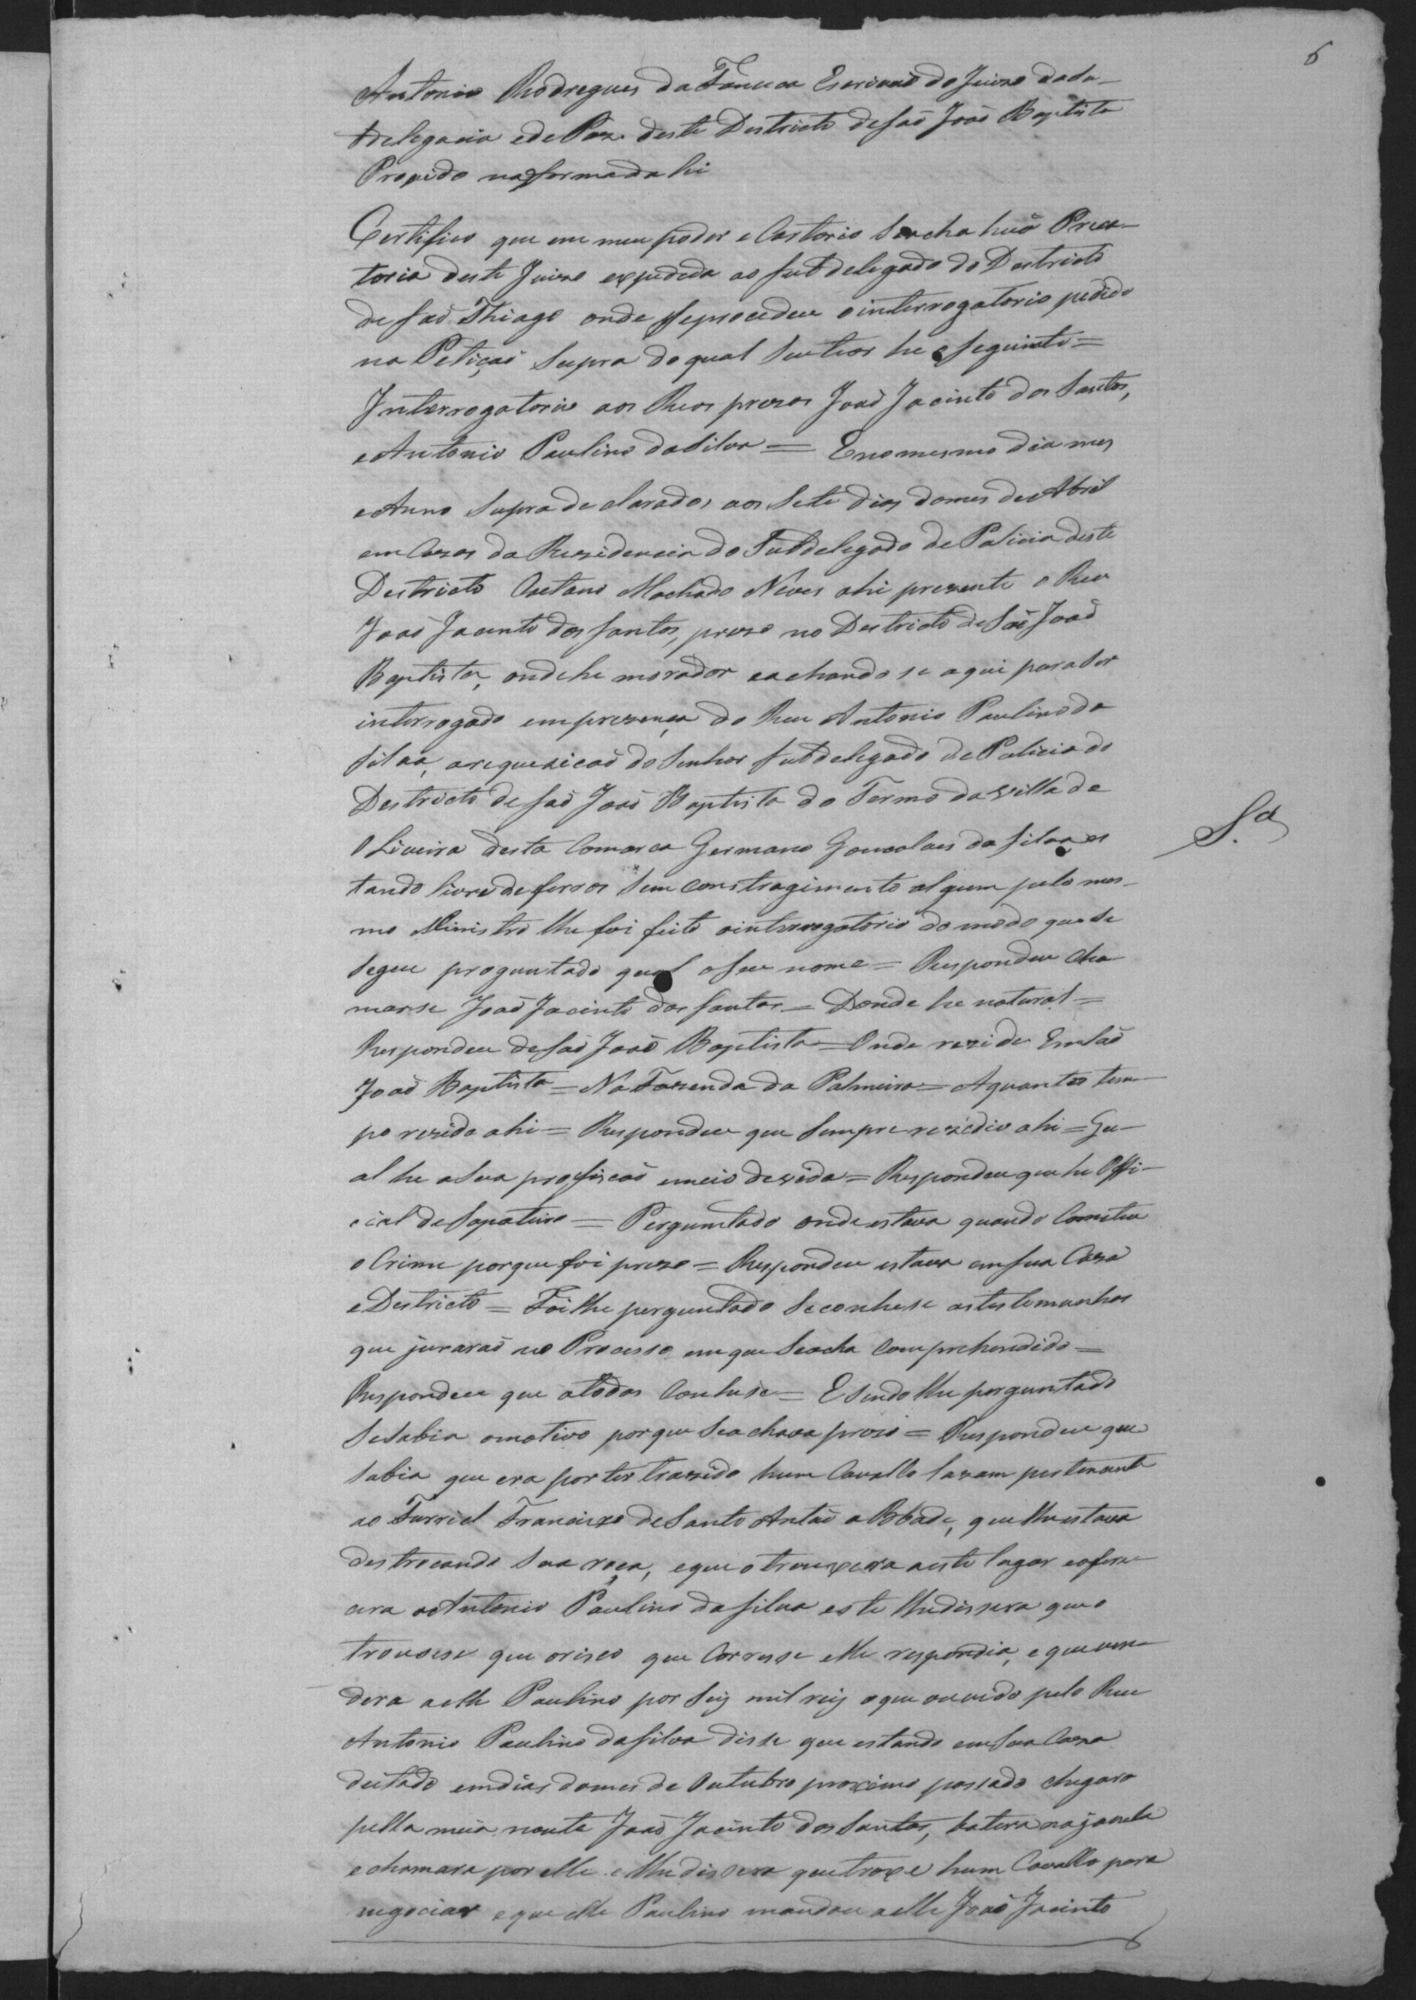 6
Antonio Rodrigues da Fonseca Escrivaõ do Juizo da Su-
bdelegacia e de Paz deste Destricto de Saõ Joaõ Baptista
na forma da Lei
Certifico que em meu poder e Cartorio Se acha huã Preca-
toria deste Juizo expedida ao Subdelegado do Destricto
de Saõ Thiago onde se procedeu o interrogatorio pedido
na Petiçaõ Supra do qual Seu theor he o Seguinte =
Interrogatorio aos Reos prezos Joaõ Jacinto dos Santos,
e Antonio Paulino da Silva = E no mesmo dia mes
e Anno Supra declarados aos Sete dias do mes de Abril
em Cazas da Rezidencia do Subdelegado de Policia deste
Destricto Caetano Machado Neves ahi prezente o Reu
Joaõ Jacinto dos Santos, prezo no Destricto de Saõ Joaõ
Baptista, onde he morador e achando se aqui para Ser
interrogado em prezença do Reu Antonio Paulino da
Silva, a requeziçaõ do Senhor Subdelegado de Policia do
Destricto de Saõ Joaõ Baptista do Termo da Villa de
Oliveira desta Comarca Germano Gonsalves da Silva es
tando livre de ferros Sem constragimento algum pelo mes-
mo Ministro lhe foi feito o interrogatorio do modo que se
Segue proguntado qual o Seu nome = Respondeu cha
marse Joaõ Jacinto dos Santos = Donde he natural =
Respondeu de Saõ Joaõ Baptista = Onde rezide Em Saõ
Joaõ Baptista = Na Fazenda da Palmeira = A quantos tem-
po rezide ahi = Respondeu que Sempre rezedio ahi = Qu-
al he a Sua profiçaõ e meio de vida = Respondeu que he Offi-
cial de Sapateiro = Perguntado onde estava quando Cometeu
o Crime porque foi prezo = Respondeu estava em Sua Caza
e Destricto = Foi lhe perguntado Se conhese as testemunhas
que juraraõ no Processo em que Se acha Comprehendido =
Respondeu que a todos Conhese = E Sendo lhe perguntado
Se Sabia o motivo por que Se achava prezo = Respondeu que
Sabia que era por ter trazido hum Cavallo lazam pertencente
ao Furriel Francisco de Santo Antaõ a Bbade, que lhe estava
destrocando Sua roça, e que o trouxera a este lugar e ofere-
cera a Antonio Paulino da Silva e este lhe dissera que o
trouxese que o risco que Corresse elle respondia, e que ven-
dera a elle Paulino por Seis mil reis o que ouvido pelo Reu
Antonio Paulino da Silva disse que estando em Sua Caza
deitado em dias do mes de Outubro proximo passado chegara
pella meia noute Joaõ Jacinto dos Santos, batera na janela
e chamara por elle e lhe dissera que troxe hum Cavallo para
negociar e que elle Paulino mandou a elle Joaõ Jacinto
S.ª